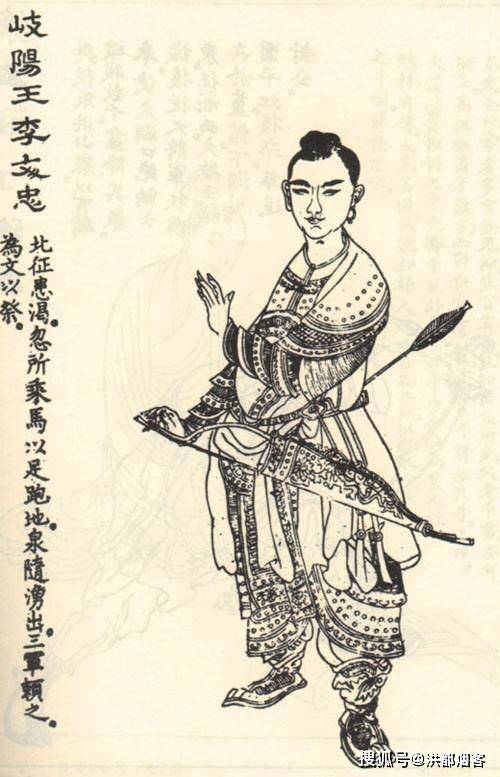 岐陽王李文忠
北征患渴。忽所乘馬以足跑地。泉隨湧出。三軍賴之。
為文以祭。
搜狐号@洪都烟客